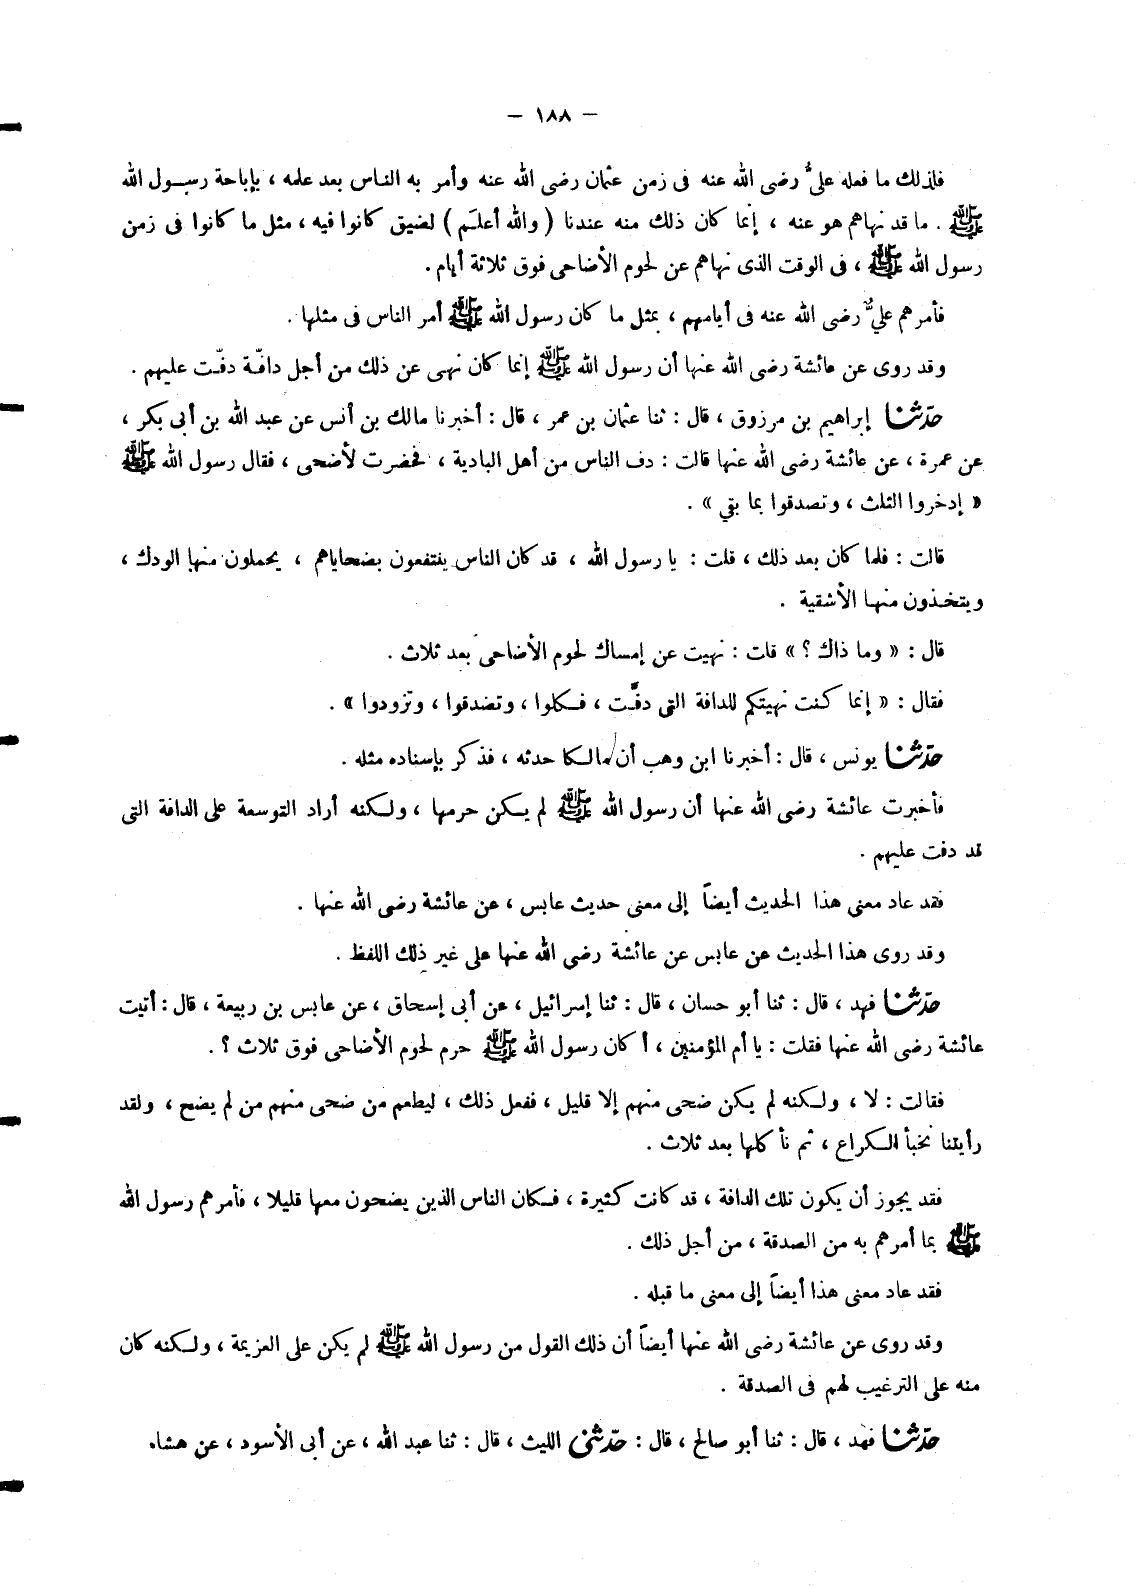 – ١٨٨ –
فلذلك ما فعله عليٌّ رضى الله عنه فى زمن عثمان رضى الله عنه وأمر به الناس بعد علمه ، بإباحة رسول الله
ﷺ . ما قد نهاهم هو عنه ، إنما كان ذلك منه عندنا ( والله أعلم ) لضيق كانوا فيه ، مثل ما كانوا فى زمن
رسول الله ﷺ ، فى الوقت الذى نهاهم عن لحوم الأضاحى فوق ثلاثة أيام .
فأمرهم عليٌّ رضى الله عنه فى أيامهم ، بمثل ما كان رسول الله ﷺ أمر الناس فى مثلها .
وقد روى عن عائشة رضى الله عنها أن رسول الله ﷺ إنما كان نهى عن ذلك من أجل دافّة دفّت عليهم .
حدّثنا إبراهيم بن مرزوق ، قال : ثنا عثمان بن عمر ، قال : أخبرنا مالك بن أنس عن عبد الله بن أبى بكر ،
عن عمرة ، عن عائشة رضى الله عنها قالت : دف الناس من أهل البادية ، فحضرت لأضحى ، فقال رسول الله ﷺ
« إدخروا الثلث ، وتصدقوا بما بقي » .
قالت : فلما كان بعد ذلك ، قلت : يا رسول الله ، قد كان الناس ينتفعون بضحاياهم ، يحملون منها الودك ،
ويتخذون منها الأسقية .
قال : « وما ذاك ؟ » قلت : نهيت عن إمساك لحوم الأضاحى بعد ثلاث .
فقال : « إنما كنت نهيتكم للدافة التى دفّت ، فكلوا ، وتصدقوا ، وتزودوا » .
حدّثنا يونس ، قال : أخبرنا ابن وهب أن مالكا حدثه ، فذكر بإسناده مثله .
فأخبرت عائشة رضى الله عنها أن رسول الله ﷺ لم يكن حرمها ، ولكنه أراد التوسعة على الدافة التى
قد دفت عليهم .
فقد عاد معنى هذا الحديث أيضاً إلى معنى حديث عابس ، عن عائشة رضى الله عنها .
وقد روى هذا الحديث عن عابس عن عائشة رضى الله عنها على غير ذلك اللفظ .
حدّثنا فهد ، قال : ثنا أبو حسان ، قال : ثنا إسرائيل ، عن أبى إسحاق ، عن عابس بن ربيعة ، قال : أتيت
عائشة رضى الله عنها فقلت : يا أم المؤمنين ، أ كان رسول الله ﷺ حرم لحوم الأضاحى فوق ثلاث ؟ .
فقالت : لا ، ولكنه لم يكن ضحى منهم إلا قليل ، ففعل ذلك ، ليطعم من ضحى منهم من لم يضح ، ولقد
رأيتنا نخبأ الكراع ، ثم نأكلها بعد ثلاث .
فقد يجوز أن يكون تلك الدافة ، قد كانت كثيرة ، فكان الناس الذين يضحون معها قليلا ، فأمرهم رسول الله
ﷺ بما أمرهم به من الصدقة ، من أجل ذلك .
فقد عاد معنى هذا أيضاً إلى معنى ما قبله .
وقد روى عن عائشة رضى الله عنها أيضاً أن ذلك القول من رسول الله ﷺ لم يكن على العزيمة ، ولكنه كان
منه على الترغيب لهم فى الصدقة .
حدّثنا فهد ، قال : ثنا أبو صالح ، قال : حدّثنى الليث ، قال : ثنا عبد الله ، عن أبى الأسود ، عن هشام